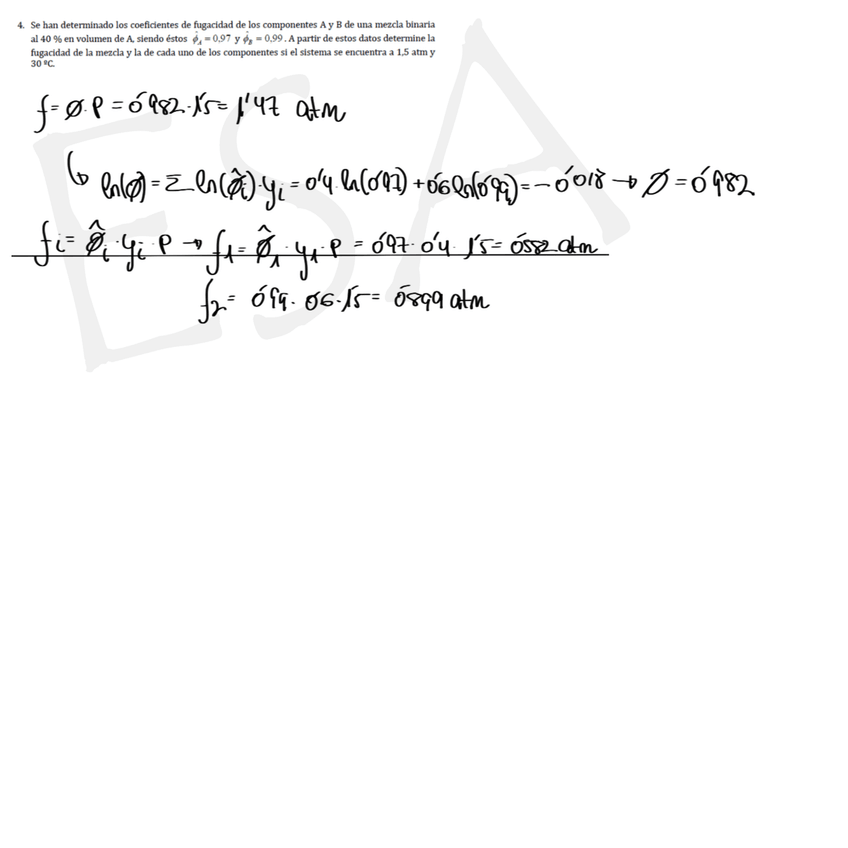 4. Se han determinado los coeficientes de fugacidad de los componentes A y B de una mezcla binaria
al 40 % en volumen de A, siendo éstos ϕ̂_A = 0,97 y ϕ̂_B = 0,99. A partir de estos datos determine la
fugacidad de la mezcla y la de cada uno de los componentes si el sistema se encuentra a 1,5 atm y
30 ºC.
f = Ø · P = 0'982 · 1'5 = 1'47 atm
↳ ln(Ø) = Σ ln(Ø̂i) · yi = 0'4 · ln(0'97) + 0'6 ln(0'99) = -0'018 → Ø = 0'982
fi = Ø̂i · yi · P → f1 = Ø̂1 · y1 · P = 0'97 · 0'4 · 1'5 = 0'582 atm
f2 = 0'99 · 0'6 · 1'5 = 0'899 atm
ESA